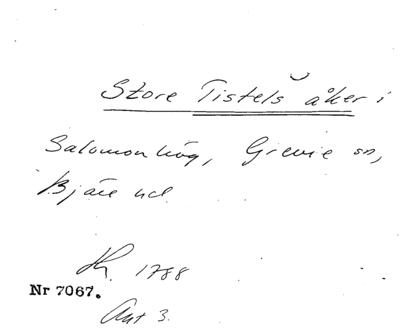 Store Tistels åker i
Salomonhög, Grevie sn,
Bjäre hd.
1788
Nr 7067.
Ant 3.